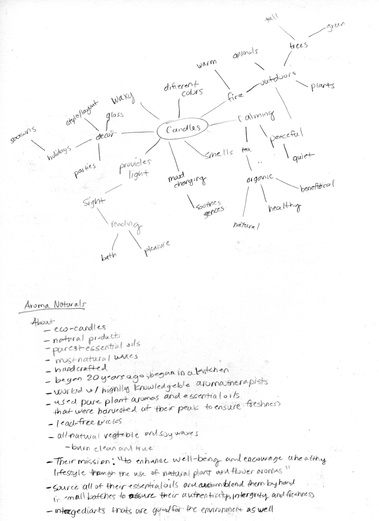 tall
green
animals
trees
warm
different
colors
outdoors
plants
style/layout
waxy
fire
glass
seasons
decor
Candles
calming
peaceful
holidays
parties
provides
light
mood
changing
smells
tea
quiet
organic
beneficial
sight
soothes
senses
healthy
natural
reading
bath
pleasure
Aroma Naturals
About
- eco-candles
- natural products
- purest essential oils
- most natural waxes
- handcrafted
- began 20 years ago, began in a kitchen
- world w/ highly knowledgeable aromatherapists
- used pure plant aromas and essential oils
that were harvested at their peak to ensure freshness
- lead-free wicks
- all natural vegetable and soy waxes
- burn clean and true
- Their mission: "to enhance well-being and encourage a healthy
lifestyle through the use of natural plant and flower aromas"
- source all of their essential oils and blend them by hand
in small batches to assure their authenticity, integrity, and freshness
- ingredients that are good for the environment as well